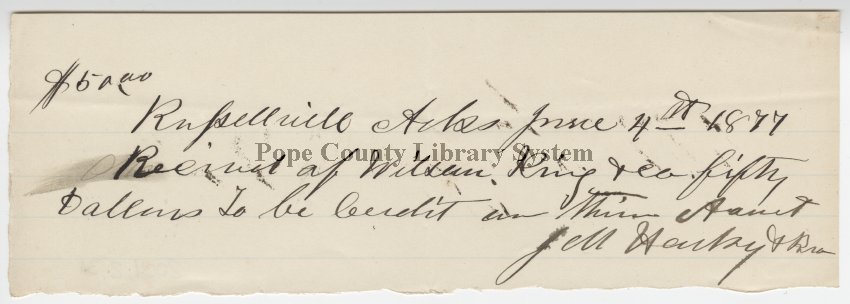 $50.00
Russellville Arks June 4th 1877
Recived of Wilson King & co fifty
Pope County Library System
Dollars To be Credit on Thir
J M Harkey & Bro